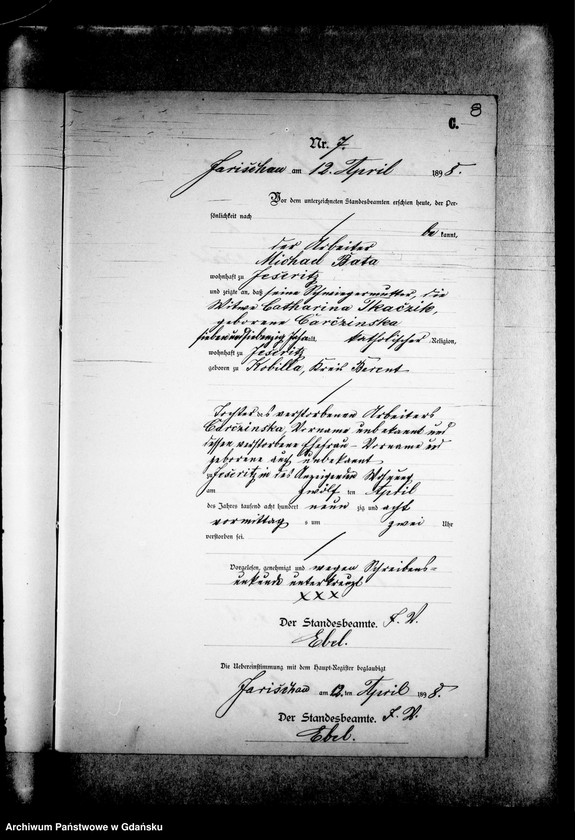 8
C.
Nr. 7.
Jarischau am 12. April 1898.
Vor dem unterzeichneten Standesbeamten erschien heute, der Per-
sönlichkeit nach
be kannt,
der Arbeiter
Michael Bata
wohnhaft zu Jeseritz
und zeigte an, daß seine Schwiegermutter, die
Witwe Catharina Tkaczik,
geborene Carczinska
siebenundsiebenzig Jahre alt, katholischer Religion,
wohnhaft zu Jeseritz
geboren zu Kobilla, Kreis Berent
Tochter des verstorbenen Arbeiters
Carczinska, Vorname unbekannt und
dessen verstorbene Ehefrau - Vorname und
geborene auch unbekannt
zu Jeseritz in des Anzeigenden Wohnung
am zwölf ten April
des Jahres tausend acht hundert neun zig und acht
vormittag s um zwei Uhr
verstorben sei.
Vorgelesen, genehmigt und wegen Schreibens-
unkunde unterkreuzt
x x x
Der Standesbeamte. I. V.
Ebel.
Die Uebereinstimmung mit dem Haupt-Register beglaubigt
Jarischau am 12. ten April 1898.
Der Standesbeamte. I. V.
Ebel.
Archiwum Państwowe w Gdańsku